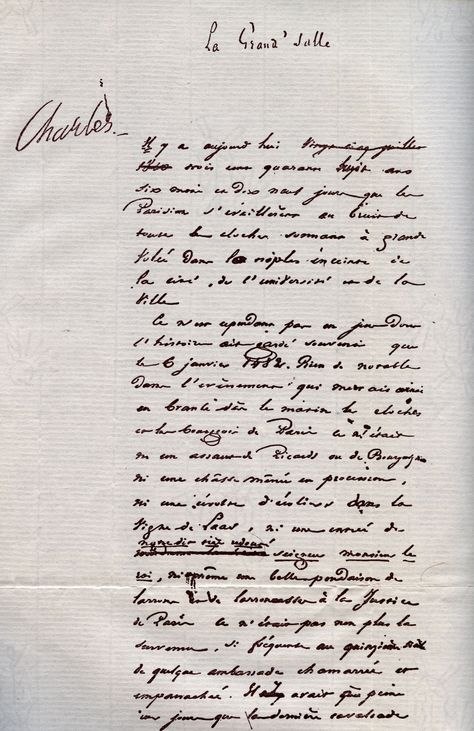 La Grand' Salle
Charles
Il y a aujourd'hui vingt cinq juillet
1830 trois cent quarante huit ans
six mois et dix neuf jours que les
Parisiens s'éveillèrent au bruit de
toutes les cloches sonnant à grande
volée dans la triple enceinte de
la cité, de l'université et de la
Ville
Ce n'est cependant pas un jour dont
l'histoire ait gardé souvenir que
le 6 janvier 1482. Rien de notable
dans l'évènement qui mettait ainsi
en branle dès le matin les cloches
et les bourgeois de Paris. Ce n'était
ni un assaut de Picards ou de Bourguignons
ni une châsse menée en procession,
ni une révolte d'écoliers dans la
Vigne de Laas, ni une entrée de
notre dit très redouté
seigneur monsieur le
roi, ni même une belle pendaison de
larrons et de larronnesses à la Justice
de Paris Ce n'était pas non plus la
survenue, si fréquente au quinzième siècle
de quelque ambassade chamarrée et
empanachée. Il y avait à peine
deux jours que la dernière cavalcade